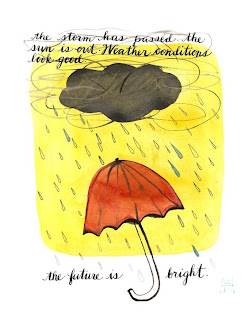 the storm has passed. the
sun is out. Weather conditions
look good.
the future is bright.